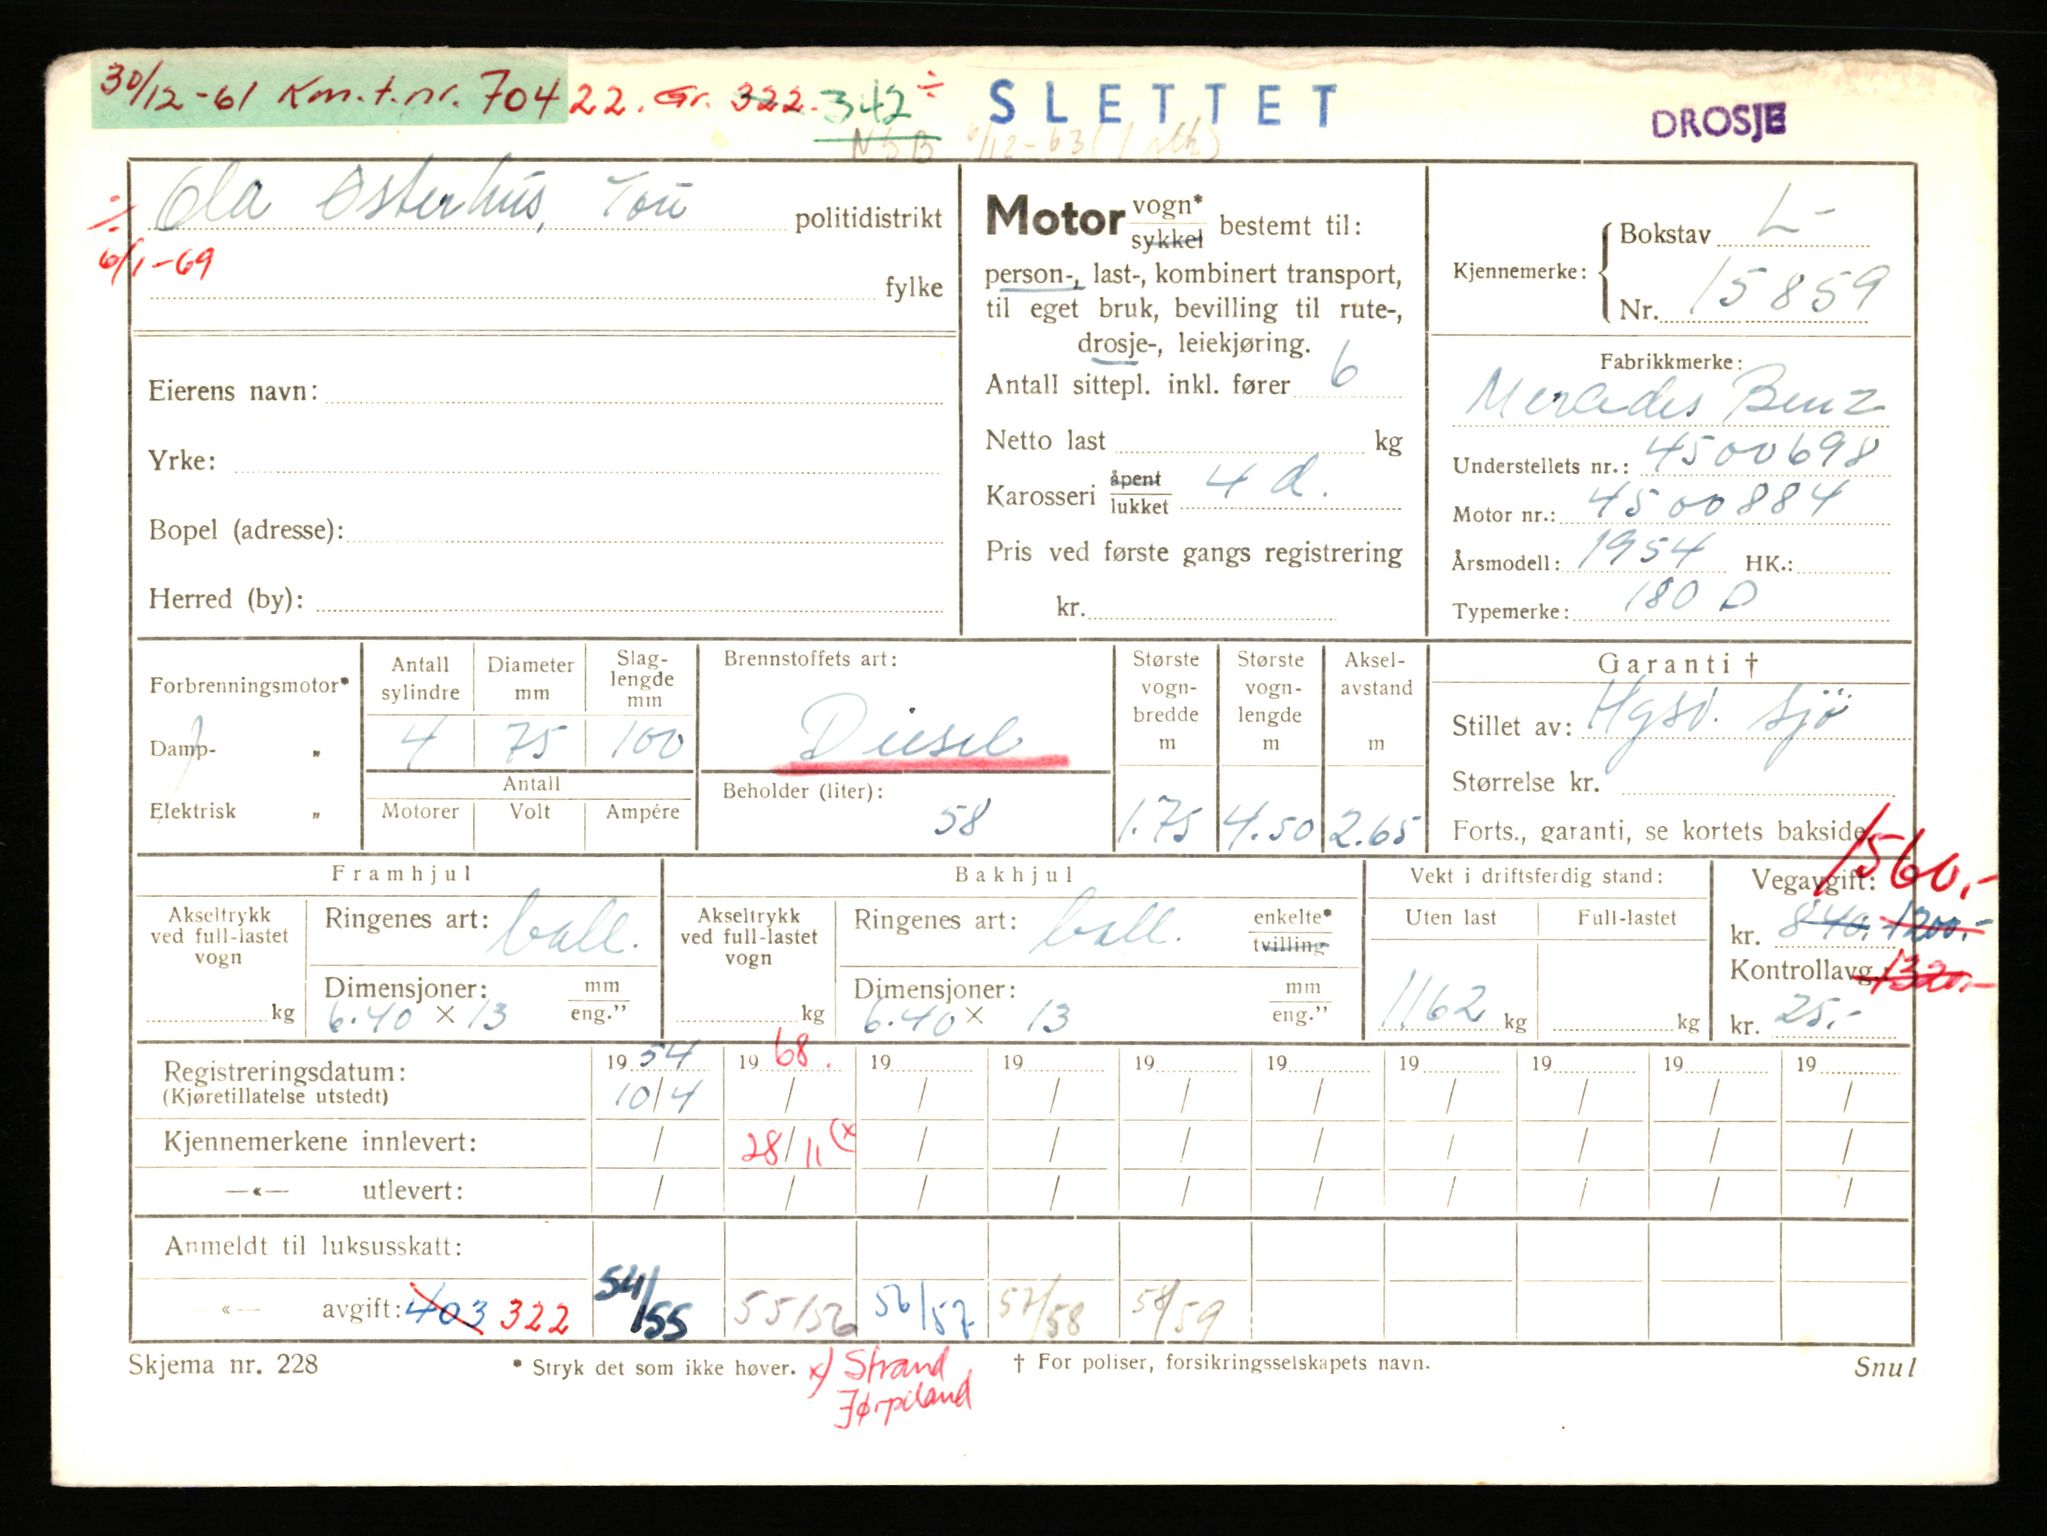 30/12-61 Kon.t.nr. 70422. Gr. 322. 342 ÷ SLETTET DROSJE
6/12-63
÷ Ola Østerhus, Tau politidistrikt
6/1-69
fylke
Eierens navn:
Yrke:
Bopel (adresse):
Herred (by):
Motor vogn* sykkel bestemt til:
person-, last-, kombinert transport,
til eget bruk, bevilling til rute-,
drosje-, leiekjøring.
Antall sittepl. inkl. fører 6
Netto last kg
Karosseri åpent lukket 4 d.
Pris ved første gangs registrering
kr.
Kjennemerke: Bokstav L-
Nr. 15859
Fabrikkmerke:
Mercedes Benz
Understellets nr.: 4500698
Motor nr.: 4500884
Årsmodell: 1954 HK.:
Typemerke: 180 D
Forbrenningsmotor*
Damp- „
Elektrisk „
Antall sylindre 4
Diameter mm 75
Slag-lengde mm 100
Antall
Motorer Volt Ampére
Brennstoffets art:
Diesel
Beholder (liter):
58
Største vogn-bredde m 1.75
Største vogn-lengde m 4.50
Aksel-avstand m 2.65
Garanti †
Stillet av: Hgsd. Sjø
Størrelse kr.
Forts., garanti, se kortets bakside
Framhjul
Akseltrykk ved full-lastet vogn
kg
Ringenes art: ball.
Dimensjoner: mm eng.”
6.40 x 13
Bakhjul
Akseltrykk ved full-lastet vogn
kg
Ringenes art: ball. enkelte* tvilling
Dimensjoner: mm eng.”
6.40 x 13
Vekt i driftsferdig stand:
Uten last Full-lastet
1162 kg kg
Vegavgift: 1560.-
kr. 840. 1200.-
Kontrollavg.: 1320.-
kr. 25.-
Registreringsdatum: 19 54 19 68. 19 19 19 19 19 19 19 19
(Kjøretillatelse utstedt) 10/4 / / / / / / / / /
Kjennemerkene innlevert: / 28/11 (x / / / / / / / /
—«— utlevert: / / / / / / / / / /
Anmeldt til luksusskatt:
—«— avgift: 403 322 54/55 55/56 56/57 57/58 58/59
Skjema nr. 228 * Stryk det som ikke høver. x) Strand † For poliser, forsikringsselskapets navn. Snul
Jørpeland